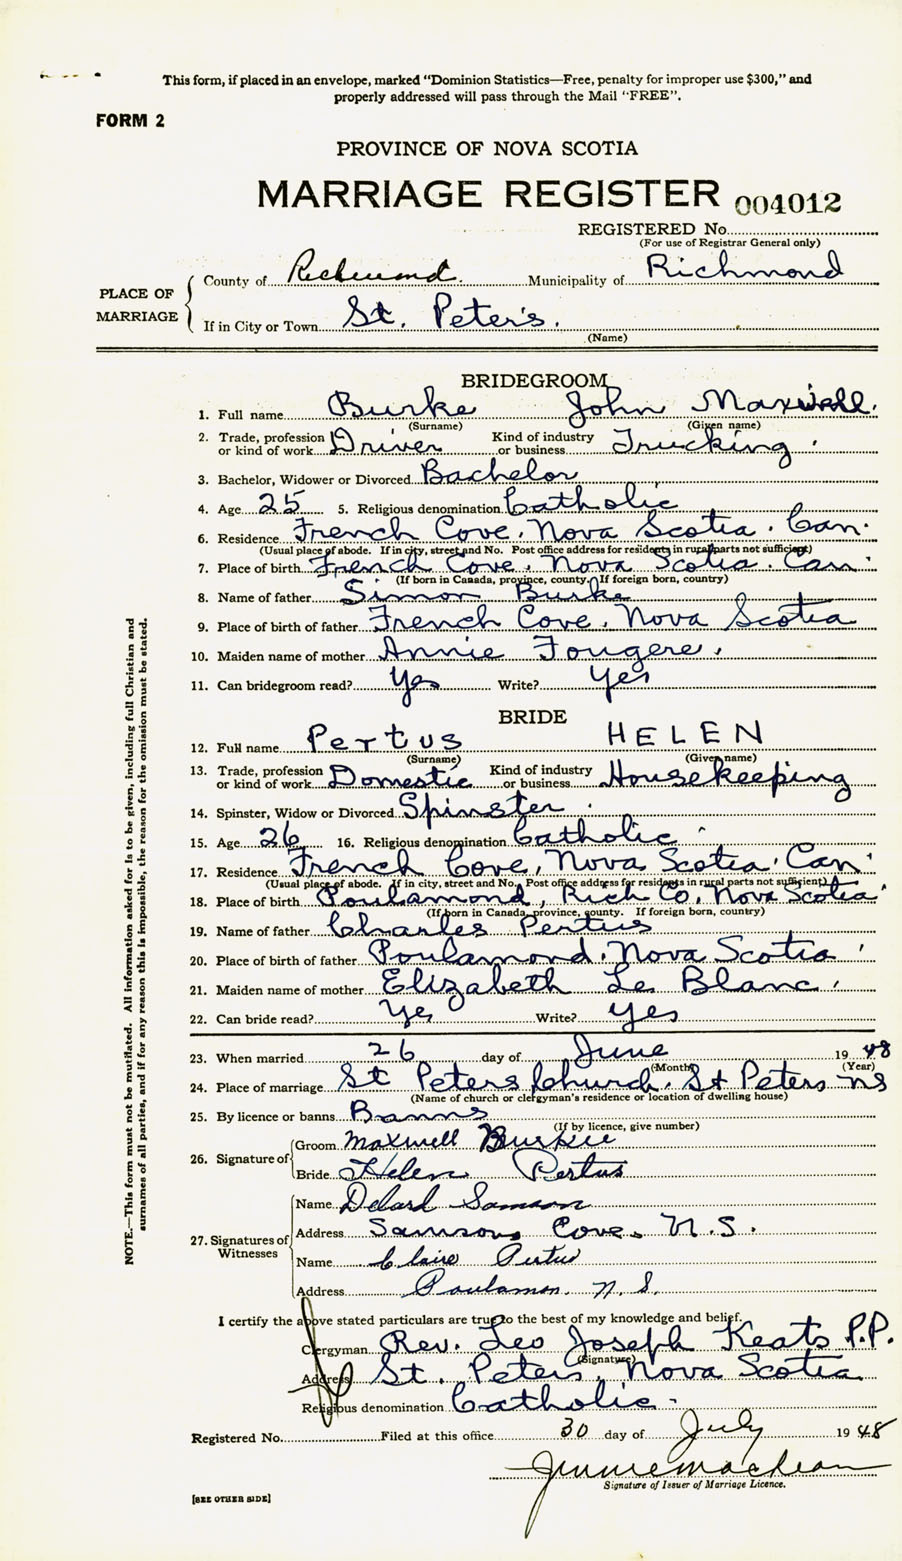 This form, if placed in an envelope, marked "Dominion Statistics—Free, penalty for improper use $300," and
properly addressed will pass through the Mail "FREE".
FORM 2
PROVINCE OF NOVA SCOTIA
MARRIAGE REGISTER 004012
REGISTERED No.
(For use of Registrar General only)
PLACE OF MARRIAGE
County of Richmond. Municipality of Richmond
If in City or Town St. Peter's.
(Name)
BRIDEGROOM
1. Full name Burke John Maxwell.
(Surname) (Given name)
2. Trade, profession or kind of work Driver Kind of industry or business Trucking.
3. Bachelor, Widower or Divorced Bachelor
4. Age 25 5. Religious denomination Catholic
6. Residence French Cove, Nova Scotia. Can.
(Usual place of abode. If in city, street and No. Post office address for residents in rural parts not sufficient)
7. Place of birth French Cove, Nova Scotia. Can.
(If born in Canada, province, county. If foreign born, country)
8. Name of father Simon Burke
9. Place of birth of father French Cove, Nova Scotia
10. Maiden name of mother Annie Fougere.
11. Can bridegroom read? Yes Write? Yes
BRIDE
12. Full name Pertus HELEN
(Surname) (Given name)
13. Trade, profession or kind of work Domestic Kind of industry or business Housekeeping
14. Spinster, Widow or Divorced Spinster.
15. Age 26 16. Religious denomination Catholic
17. Residence French Cove, Nova Scotia. Can.
(Usual place of abode. If in city, street and No. Post office address for residents in rural parts not sufficient)
18. Place of birth Poulamond, Rich Co. Nova Scotia
(If born in Canada, province, county. If foreign born, country)
19. Name of father Charles Pertus
20. Place of birth of father Poulamond. Nova Scotia
21. Maiden name of mother Elizabeth Le Blanc.
22. Can bride read? Yes Write? Yes
23. When married 26 day of June 1948
(Month) (Year)
24. Place of marriage St Peters Church. St Peters NS
(Name of church or clergyman's residence or location of dwelling house)
25. By licence or banns Banns
(If by licence, give number)
26. Signature of
Groom Maxwell Burke
Bride Helen Pertus
27. Signatures of Witnesses
Name Delard Samson
Address Samsons Cove, N.S.
Name Claire Pertus
Address Poulamon. N.S.
I certify the above stated particulars are true to the best of my knowledge and belief.
Clergyman Rev. Leo Joseph Keats P.P.
(Signature)
Address St. Peters, Nova Scotia
Religious denomination Catholic.
Registered No. Filed at this office 30 day of July 1948
Signature of Issuer of Marriage Licence.
[SEE OTHER SIDE]
NOTE.—This form must not be mutilated. All information asked for is to be given, including full Christian and
surnames of all parties, and if for any reason this is impossible, the reason for the omission must be stated.